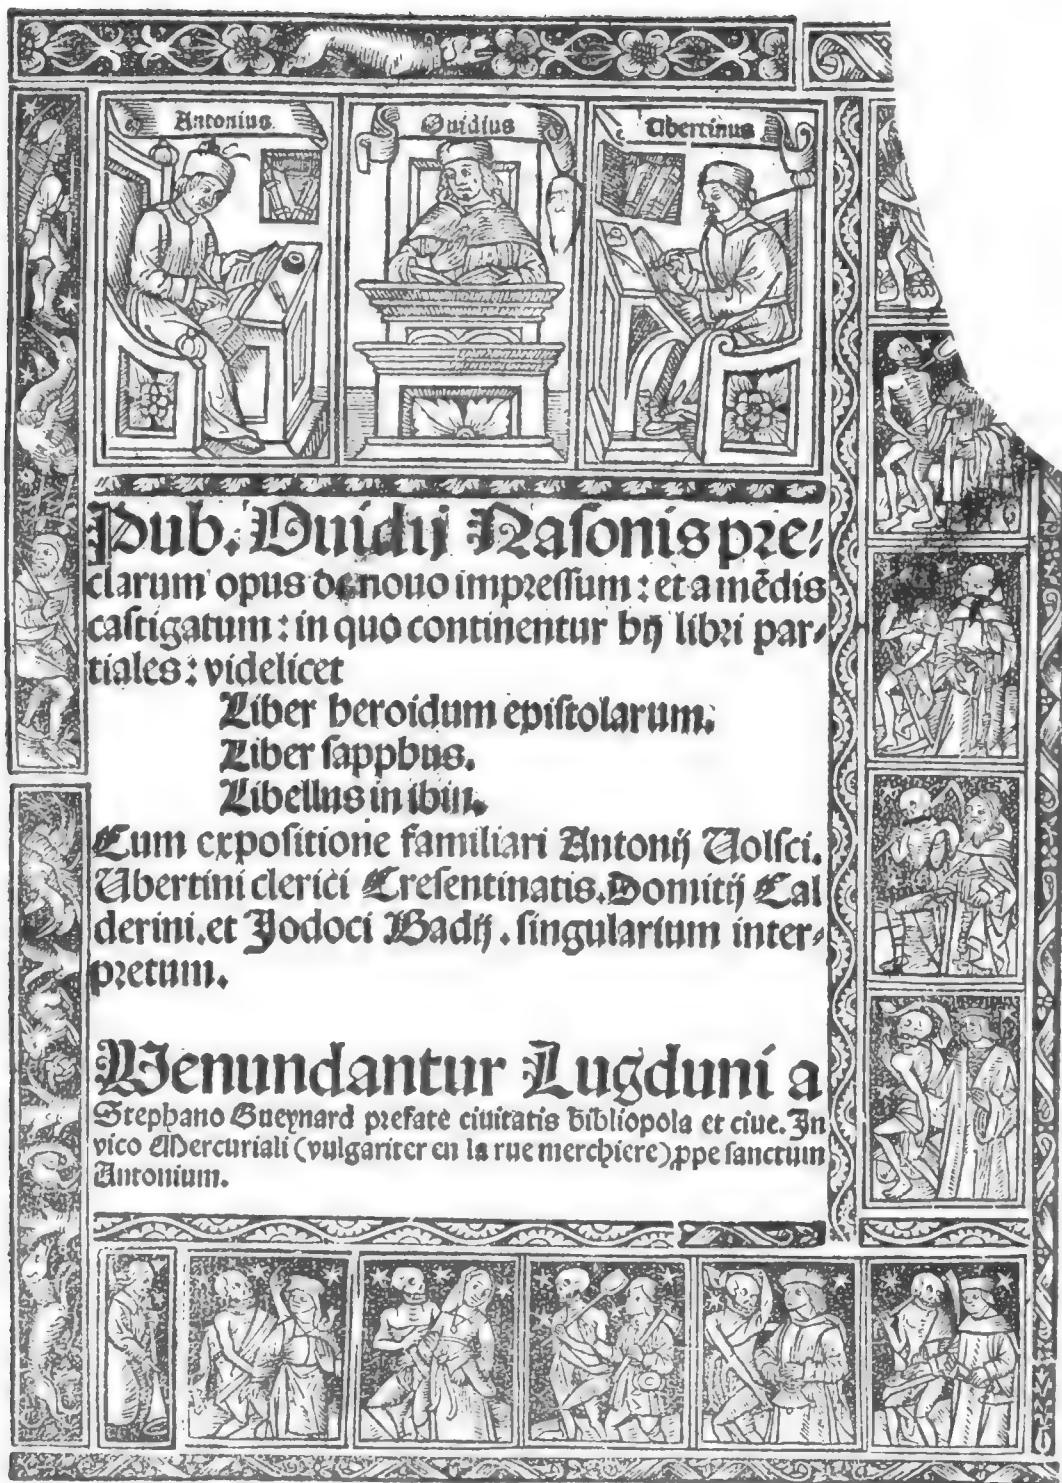 Antonius
Ouidius
Ubertinus
Pub. Ouidij Nasonis pre/
clarum opus denouo impressum : et a mẽdis
castigatum : in quo continentur hij libri par/
tiales : videlicet
Liber heroidum epistolarum.
Liber sapphus.
Libellus in ibin.
Cum expositione familiari Antonij Uolsci.
Ubertini clerici Cresentinatis. Domitij Cal
derini. et Jodoci Badij . singularium inter/
pretum.
Venundantur Lugduni a
Stephano Gueynard prefate ciuitatis bibliopola et ciue. In
vico Mercuriali (vulgariter en la rue merchiere) ꝓpe sanctum
Antonium.